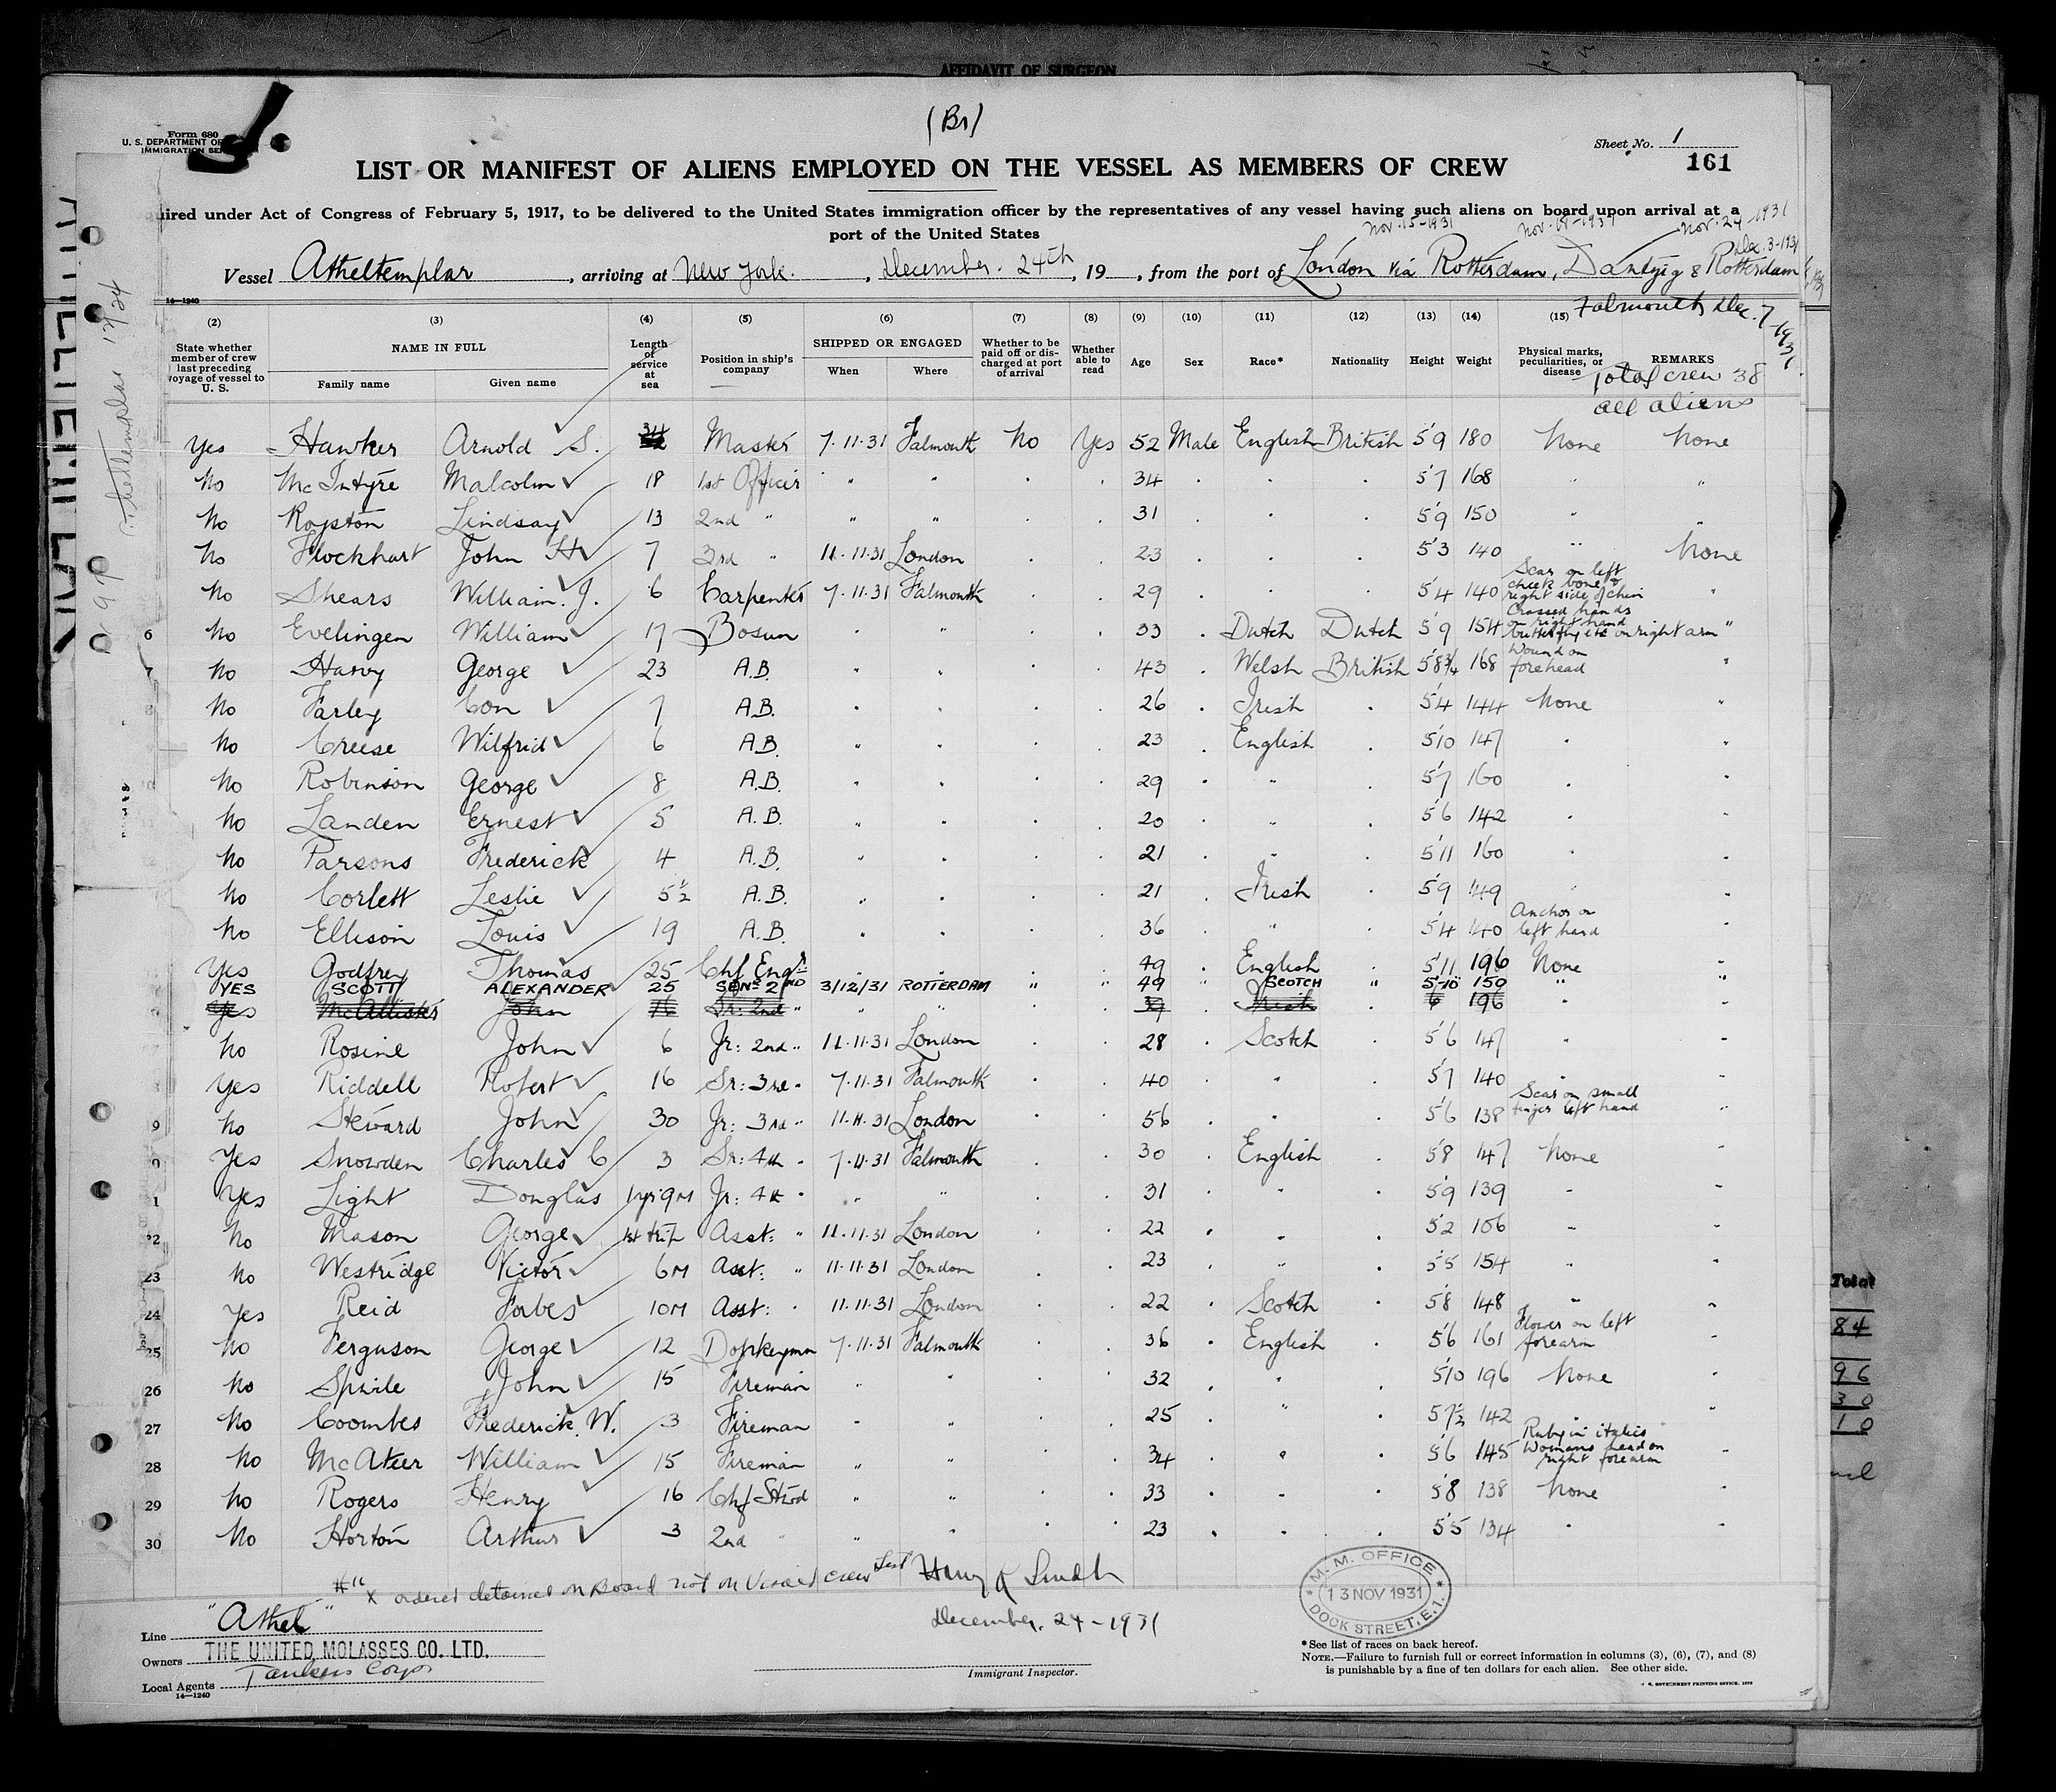 AFFIDAVIT OF SURGEON
(Br)
Form 680
U. S. DEPARTMENT OF
IMMIGRATION SE
Sheet No. 1
161
LIST OR MANIFEST OF ALIENS EMPLOYED ON THE VESSEL AS MEMBERS OF CREW
ired under Act of Congress of February 5, 1917, to be delivered to the United States immigration officer by the representatives of any vessel having such aliens on board upon arrival at a
port of the United States
Nov. 15-1931 Nov. 18-1931 Nov. 24-1931
Dec. 3-1931
Vessel Atheltemplar, arriving at New York., December. 24th, 19, from the port of London via Rotterdam, Dantzig & Rotterdam
Falmouth Dec. 7-1931
14-1240
(2) (3) (4) (5) (6) (7) (8) (9) (10) (11) (12) (13) (14) (15)
State whether member of crew last preceding voyage of vessel to U. S. NAME IN FULL Family name Given name Length of service at sea Position in ship's company SHIPPED OR ENGAGED When Where Whether to be paid off or discharged at port of arrival Whether able to read Age Sex Race* Nationality Height Weight Physical marks, peculiarities, or disease REMARKS
Total crew 38
all aliens
Yes Hawker Arnold S. 34 Master 7.11.31 Falmouth No Yes 52 Male English British 5'9 180 None None
No McIntyre Malcolm 18 1st Officer " " . . 34 . . . 5'7 168 " "
No Royston Lindsay 13 2nd " " " . . 31 . . . 5'9 150 " "
No Flockhart John H 7 3rd " 11.11.31 London . . 23 . . . 5'3 140 " None
No Shears William. J. 6 Carpenter 7.11.31 Falmouth . . 29 . . . 5'4 140 Scar on left cheek bone & right side of chin "
6 No Evelingen William 17 Bosun " " . . 33 . Dutch Dutch 5'9 154 Crossed hands on right hand butterfly etc on right arm "
7 No Harvy George 23 A.B. . . . . 43 . Welsh British 5'8¾ 168 Wound on forehead "
8 No Farley Con 7 A.B. . . . . 26 . Irish . 5'4 144 None "
No Creese Wilfrid 6 A.B. " . . . 23 . English . 5'10 147 . "
No Robinson George 8 A.B. . . . . 29 . " . 5'7 160 . .
No Landen Ernest 5 A.B. " . . . 20 . " . 5'6 142 . "
No Parsons Frederick 4 A.B. " . . . 21 . " . 5'11 160 . .
No Corlett Leslie 5½ A.B. " . . . 21 . Irish . 5'9 149 " .
No Ellison Louis 19 A.B. . . . . 36 . " . 5'4 140 Anchor on left hand "
Yes Godfrey Thomas 25 Chf Engr . . . . 49 . English . 5'11 196 None "
YES SCOTT ALEXANDER 25 SEN. 2ND 3/12/31 ROTTERDAM " " 49 " SCOTCH " 5'-10 150 " "
Yes McAllister John 16 Sr: 2nd " " " . 39 . Irish 6 196 . .
No Rosine John 6 Jr: 2nd " 11.11.31 London . . 28 . Scotch . 5'6 147 . "
Yes Riddell Robert 16 Sr: 3rd . 7.11.31 Falmouth . . 40 . " . 5'7 140 . "
9 No Steward John 30 Jr: 3rd " 11.11.31 London . . 56 . . . 5'6 138 Scar on small finger left hand "
0 Yes Snowden Charles C 3 Sr: 4th . 7.11.31 Falmouth . . 30 . English . 5'8 147 None "
1 Yes Light Douglas 1yr 9M Jr: 4th . " " . . 31 . " . 5'9 139 " "
22 No Mason George 1st trip Asst: " 11.11.31 London . . 22 . . . 5'2 106 " "
23 No Westridge Victor 6M Asst: " 11.11.31 London . . 23 . " . 5'5 154 " "
24 Yes Reid Forbes 10M Asst: . 11.11.31 London . . 22 . Scotch . 5'8 148 " "
25 No Ferguson George 12 Donkeyman 7.11.31 Falmouth . . 36 . English . 5'6 161 Flower on left forearm "
26 No John 15 Fireman " " . . 32 . . . 5'10 196 None "
27 No Coombes Frederick. W. 3 Fireman " " . . 25 . " . 5'7½ 142 . "
28 No McAteer William 15 Fireman " " . . 34 . . . 5'6 145 Ruby in italics Womans head on right forearm "
29 No Rogers Henry 16 Chf Stwd " " . . 33 . . . 5'8 138 None "
30 No Horton Arthur 3 2nd " " . . . 23 . . . 5'5 134 . "
X ordered detained on Board not on Visaed crew List
December. 24-1931
Line "Athel"
Owners THE UNITED MOLASSES CO. LTD.
Local Agents Tankers Corp
14-1240
Immigrant Inspector.
M.M. OFFICE
13 NOV 1931
DOCK STREET, E.1.
*See list of races on back hereof.
NOTE.—Failure to furnish full or correct information in columns (3), (6), (7), and (8)
is punishable by a fine of ten dollars for each alien. See other side.
Total
84
96
30
10